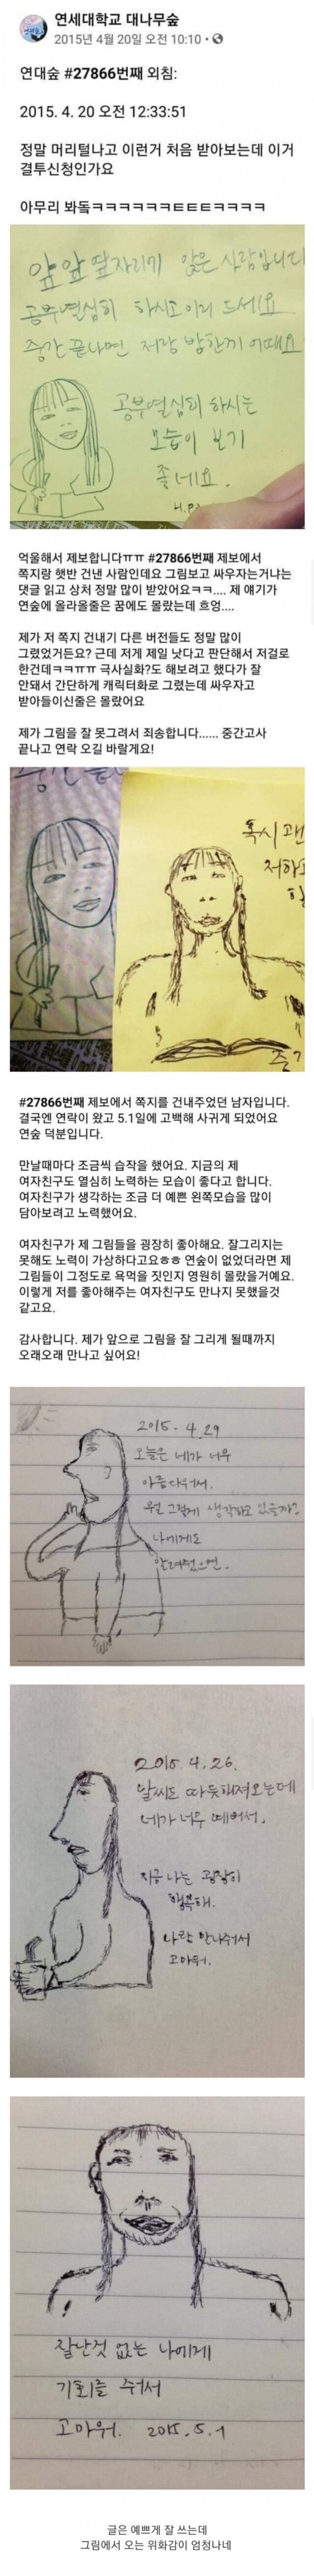 연세대학교 대나무숲
2015년 4월 20일 오전 10:10 ·
연대숲 #27866번째 외침:
2015. 4. 20 오전 12:33:51
정말 머리털나고 이런거 처음 받아보는데 이거
결투신청인가요
아무리 봐돜ㅋㅋㅋㅋㅋㅋㅌㅌㅌㅋㅋㅋㅋ
앞앞 옆자리에 앉은 사람입니다
공부열심히 하시고 이거 드세요
중간 끝나면 저랑 밥한끼 어때요
공부열심히 하시는
모습이 보기
좋네요.
억울해서 제보합니다ㅠㅠ #27866번째 제보에서
쪽지랑 햇반 건낸 사람인데요 그림보고 싸우자는거냐는
댓글 읽고 상처 정말 많이 받았어요ㅋㅋ.... 제 얘기가
연숲에 올라올줄은 꿈에도 몰랐는데 흐엉....
제가 저 쪽지 건내기 다른 버전들도 정말 많이
그렸었거든요? 근데 저게 제일 낫다고 판단해서 저걸로
한건데ㅋㅋㅠㅠ 극사실화?도 해보려고 했다가 잘
안돼서 간단하게 캐릭터화로 그렸는데 싸우자고
받아들이신줄은 몰랐어요
제가 그림을 잘 못그려서 죄송합니다...... 중간고사
끝나고 연락 오길 바랄게요!
혹시 괜
저하고
#27866번째 제보에서 쪽지를 건내주었던 남자입니다.
결국엔 연락이 왔고 5.1일에 고백해 사귀게 되었어요
연숲 덕분입니다.
만날때마다 조금씩 습작을 했어요. 지금의 제
여자친구도 열심히 노력하는 모습이 좋다고 합니다.
여자친구가 생각하는 조금 더 예쁜 왼쪽모습을 많이
담아보려고 노력했어요.
여자친구가 제 그림들을 굉장히 좋아해요. 잘그리지는
못해도 노력이 가상하다고요ㅎㅎ 연숲이 없었더라면 제
그림들이 그정도로 욕먹을 짓인지 영원히 몰랐을거예요.
이렇게 저를 좋아해주는 여자친구도 만나지 못했을것
같고요.
감사합니다. 제가 앞으로 그림을 잘 그리게 될때까지
오래오래 만나고 싶어요!
2015. 4.29
오늘은 네가 너무
아름다워서.
뭘 그렇게 생각하고 있을까?
나에게도
알려줬으면.
2015. 4.26.
날씨도 따뜻해져오는데
네가 너무 예뻐서.
지금 나는 굉장히
행복해.
나랑 만나줘서
고마워.
잘난것 없는 나에게
기회를 줘서
고마워. 2015.5.1
글은 예쁘게 잘 쓰는데
그림에서 오는 위화감이 엄청나네